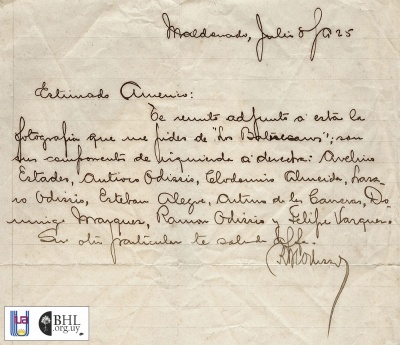 Maldonado, Julio 8/925
Estimado Americo:
Te remito adjunto a esta la
fotografia que me pides de "Los
sus componente de izquierda a derecha: Avelino
Estades, Antivos Odissio, Clodomiro Almeida, Laza-
ro Odissio, Esteban Alegre, Arturo de las Carreras, Do-
mingo Marquez, Ramon Odissio y Felipe Vazquez.
Sin otro particular te saluda
BHL
.org.uy